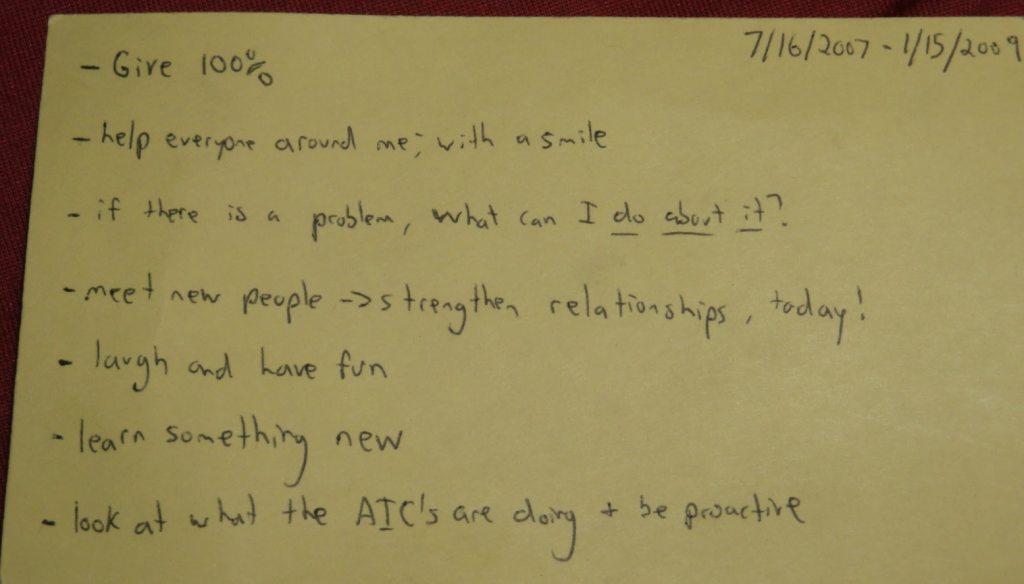 7/16/2007 - 1/15/2009
- Give 100%
- help everyone around me; with a smile
- if there is a problem, what can I do about it?
- meet new people -> strengthen relationships, today!
- laugh and have fun
- learn something new
- look at what the AIC's are doing + be proactive